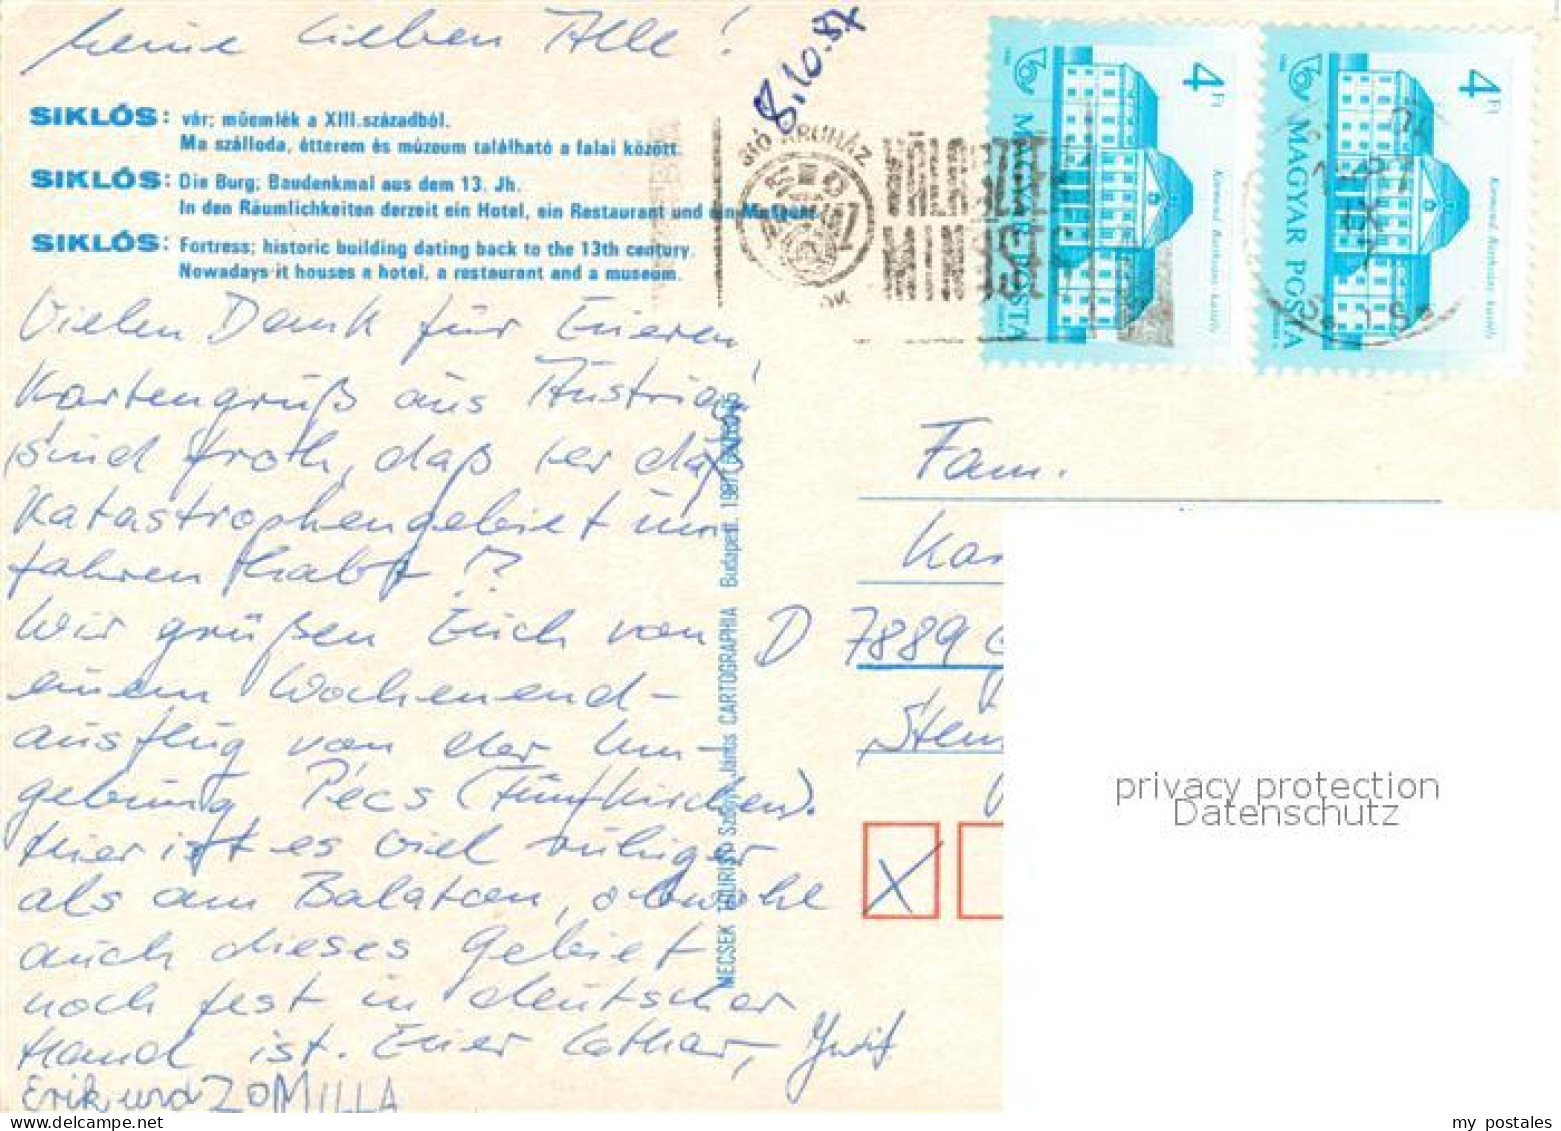 Meine lieben Alle!
8.10.87
SIKLÓS: vár; műemlék a XIII.századból.
Ma szálloda, étterem és múzeum található a falai között.
SIKLÓS: Die Burg; Baudenkmal aus dem 13. Jh.
In den Räumlichkeiten derzeit ein Hotel, ein Restaurant und ein Museum
SIKLÓS: Fortress; historic building dating back to the 13th century.
Nowadays it houses a hotel, a restaurant and a museum.
Vielen Dank für Eueren
Kartengruß aus Austria!
sind froh, daß Ihr das
Katastrophengebiet um
fahren habt!?
Wir grüßen Euch von
einem Wochenend-
ausflug von der Um-
gebung Pécs (Fünfkirchen).
Hier ist es viel ruhiger
als am Balaton, obwohl
auch dieses Gebiet
noch fest in deutscher
Hand ist. Euer Lothar, Judit
Erik und ZOMILLA
MECSEK TOURIST Szelényi János CARTOGRAPHIA Budapest, 1987
ÁRUHÁZ
4 Ft
MAGYAR POSTA
4 Ft
MAGYAR POSTA
Fam.
Kas
D 7889 G
privacy protection
Datenschutz
my postales